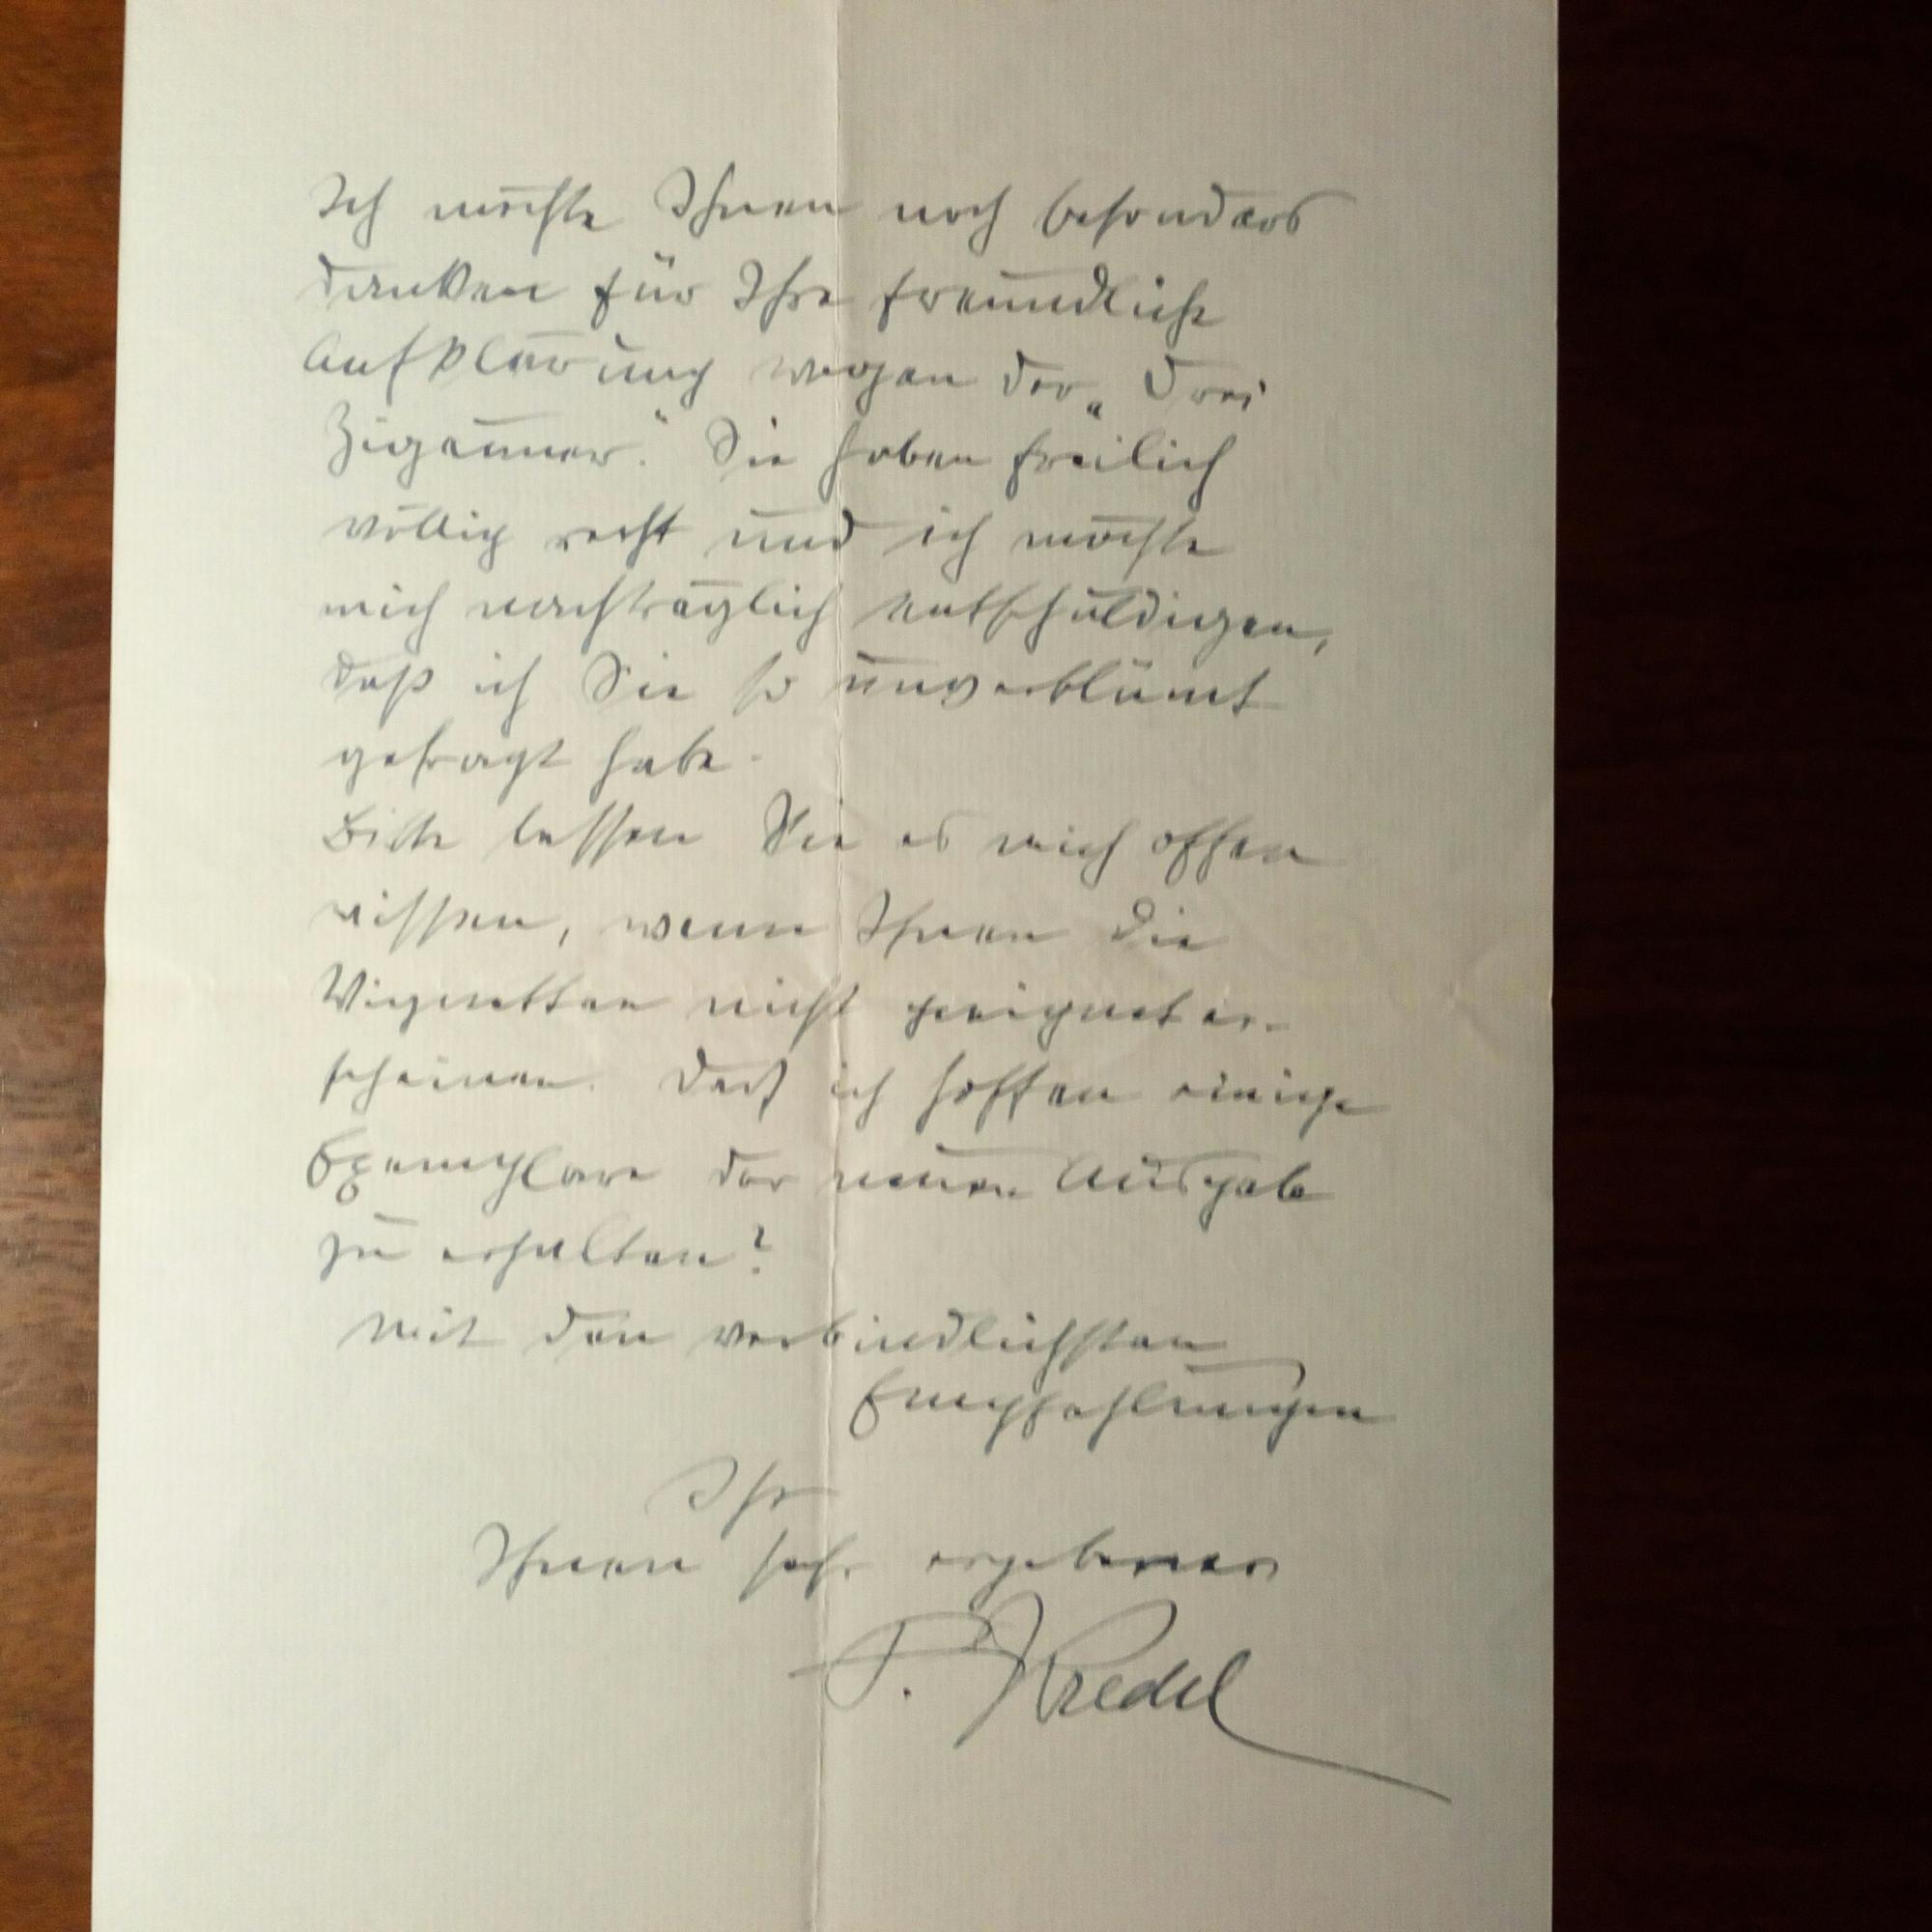 Ich möchte Ihnen noch besonders
danken für Ihre freundliche
Aufklärung wegen der „Drei
Zigeuner“. Sie haben freilich
völlig recht und ich möchte
mich nachträglich entschuldigen,
daß ich Sie so unverblümt
gefragt habe.
Bitte lassen Sie es mich offen
wissen, wenn Ihnen die
Vignetten nicht geeignet er-
scheinen. Darf ich hoffen einige
Exemplare der neuen Ausgabe
zu erhalten?
Mit den verbindlichsten
Empfehlungen
Ihr
Ihnen sehr ergebener
F. Kredel